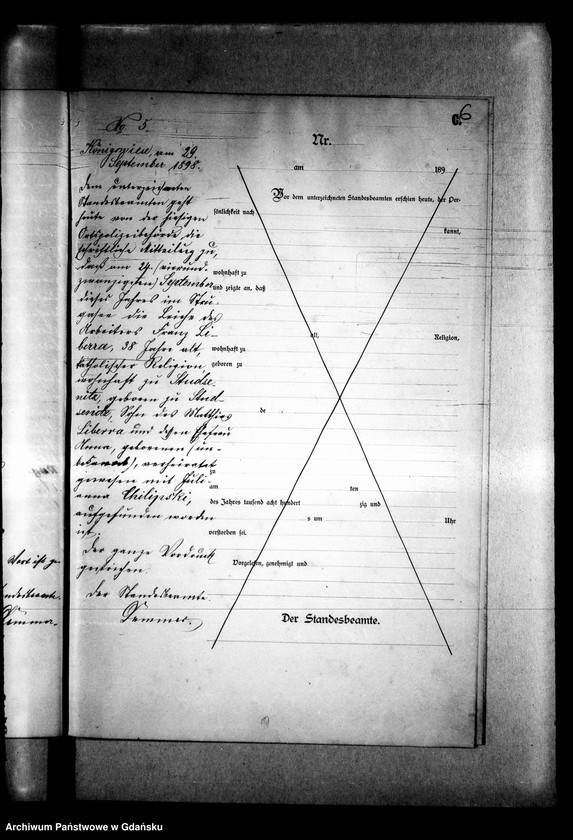 C. 6
No 5.
Nr.
am 29.
September 1898.
am 189
Dem unterzeichneten
Standesbeamten geht
heute von der hiesigen
Ortspolizeibehörde die
schriftliche Mitteilung zu,
daß am 24. (vierund-
zwanzigsten) September
dieses Jahres im
die Leiche des
Arbeiters Franz Li-
berra, 38 Jahre alt,
katholischer Religion,
wohnhaft zu
geboren zu
Sohn des Matthias
Liberra und dessen Ehefrau
Anna, geborenen (un-
bekannt), verheiratet
gewesen mit Juli-
anna Chilinski,
aufgefunden worden
ist.
Der ganze Vordruck
gestrichen.
Der Standesbeamte.
Vor dem unterzeichneten Standesbeamten erschien heute, der Per-
sönlichkeit nach
kannt,
wohnhaft zu
und zeigte an, daß
alt, Religion,
wohnhaft zu
geboren zu
de
zu
am ten
des Jahres tausend acht hundert zig und
s um Uhr
verstorben sei.
Vorgelesen, genehmigt und
Der Standesbeamte.
Archiwum Państwowe w Gdańsku